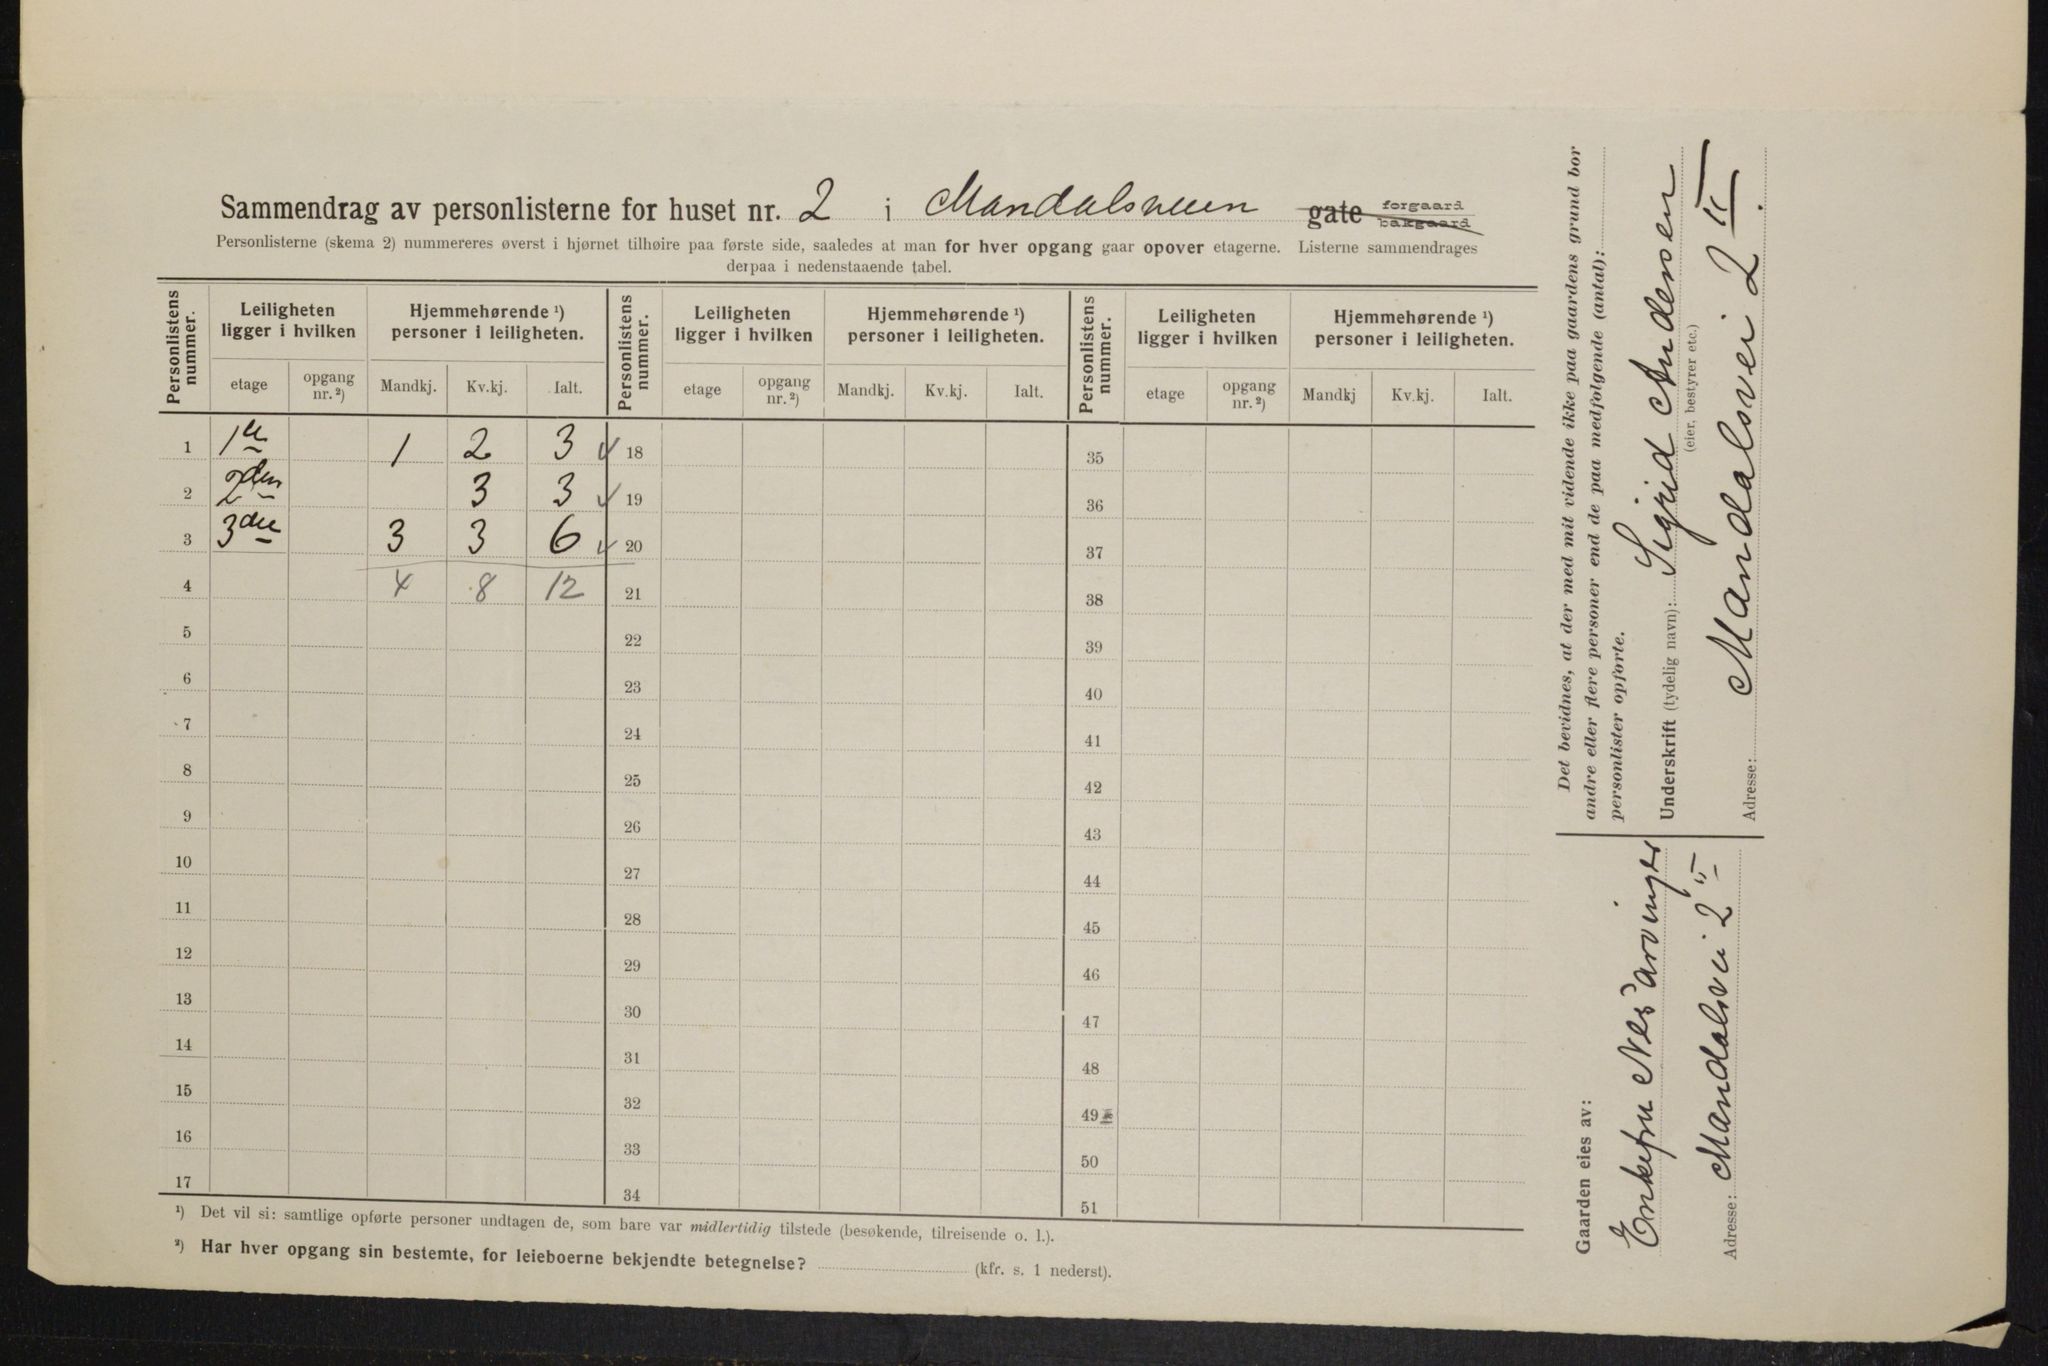 Sammendrag av personlisterne for huset nr. 2 i Mandalsveien gate forgaard bakgaard
Personlisterne (skema 2) nummereres øverst i hjørnet tilhøire paa første side, saaledes at man for hver opgang gaar opover etagerne. Listerne sammendrages
derpaa i nedenstaaende tabel.
Personlistens nummer. Leiligheten ligger i hvilken Hjemmehørende ¹) personer i leiligheten. Personlistens nummer. Leiligheten ligger i hvilken Hjemmehørende ¹) personer i leiligheten. Personlistens nummer. Leiligheten ligger i hvilken Hjemmehørende ¹) personer i leiligheten.
etage opgang nr. ²) Mandkj. Kv.kj. Ialt. etage opgang nr. ²) Mandkj. Kv.kj. Ialt. etage opgang nr. ²) Mandkj Kv.kj. Ialt.
1 1ste 1 2 3 18 35
2 2den 3 3 19 36
3 3die 3 3 6 20 37
4 4 8 12 21 38
5 22 39
6 23 40
7 24 41
8 25 42
9 26 43
10 27 44
11 28 45
12 29 46
13 30 47
14 31 48
15 32 49
16 33 50
17 34 51
¹) Det vil si: samtlige opførte personer undtagen de, som bare var midlertidig tilstede (besøkende, tilreisende o. l.).
²) Har hver opgang sin bestemte, for leieboerne bekjendte betegnelse? (kfr. s. 1 nederst).
Det bevidnes, at der med mit vidende ikke paa gaardens grund bor
andre eller flere personer end de paa medfølgende (antal):
personlister opførte.
Underskrift (tydelig navn): Sigrid Andersen
(eier, bestyrer etc.)
Adresse: Mandalsvei 2 II
Gaarden eies av:
Enkefru Nes' arvinger
Adresse: Mandalsvei 2 II